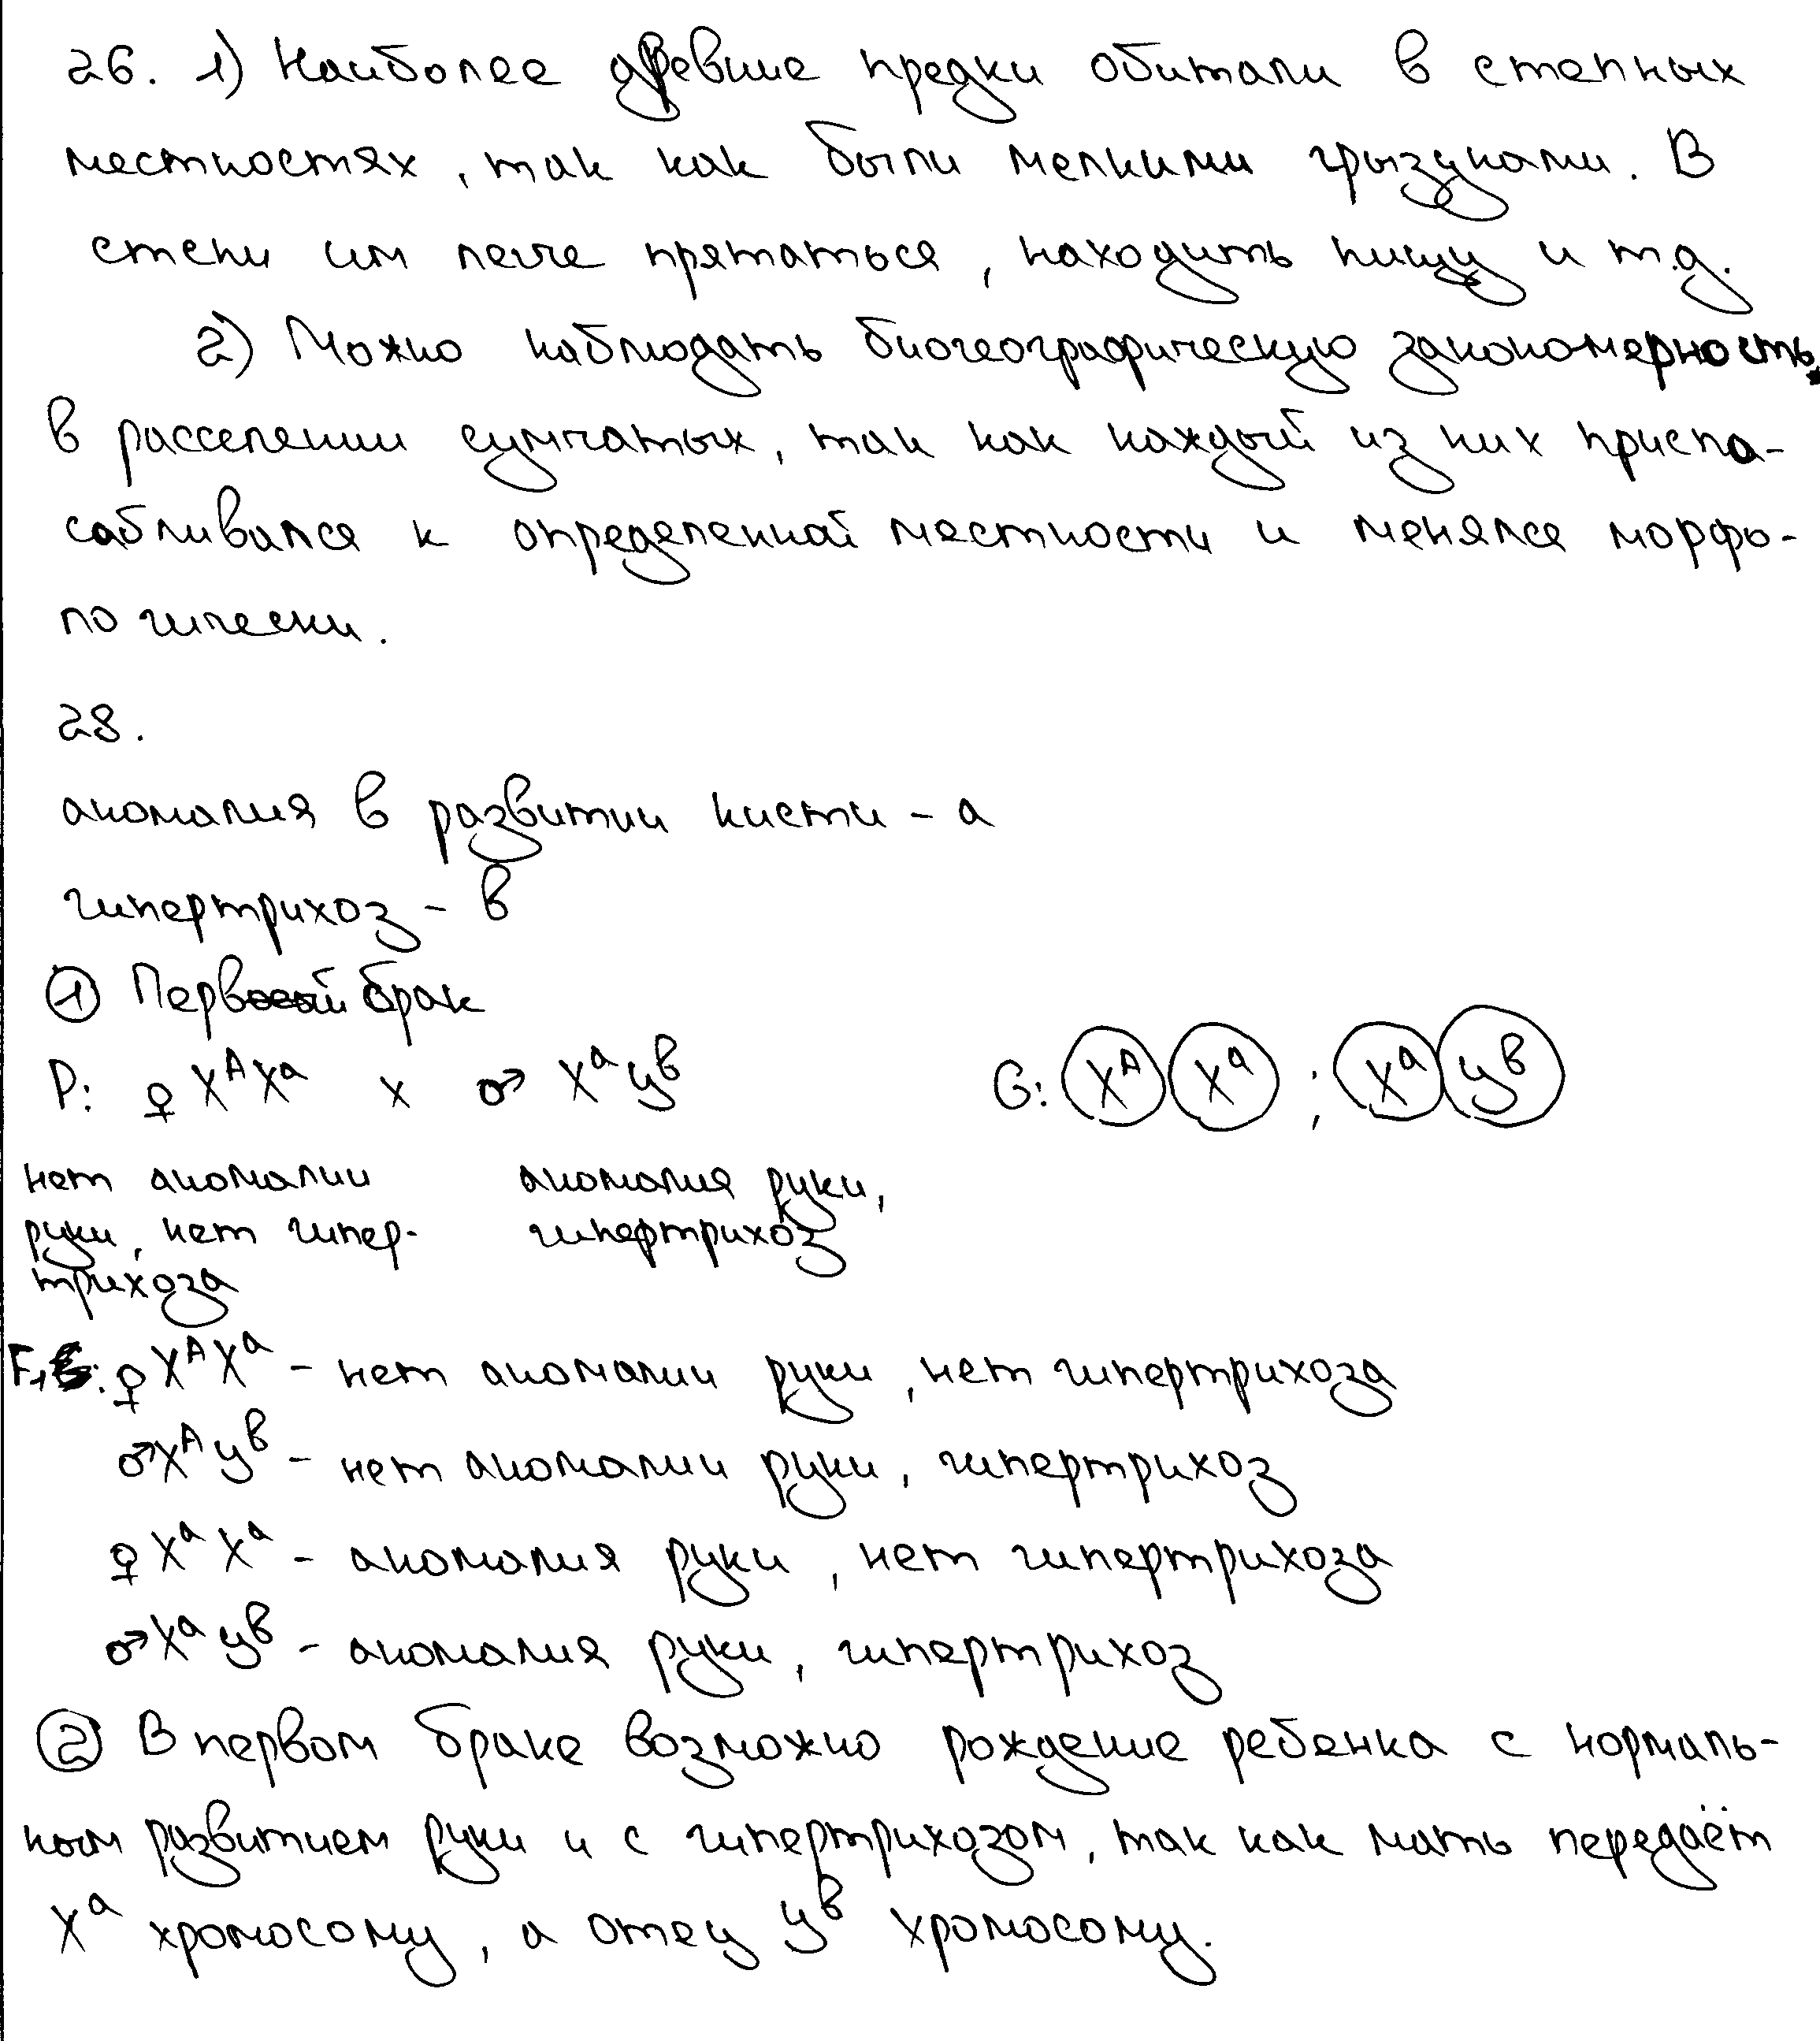 26. 1) Наиболее древние предки обитали в степных
местностях, так как были мелкими грызунами. В
степи им легче прятаться, находить пищу и т.д.
2) Можно наблюдать биогеографическую закономерность
в расселении сумчатых, так как каждый из них приспа-
сабливался к определенной местности и менялся морфо-
логически.
28.
аномалия в развитии кисти - а
гипертрихоз - в
① Первый брак
P: ♀ XᴬXᵃ x ♂ Xᵃyᵇ G: Xᴬ Xᵃ ; Xᵃ yᵇ
нет аномалии аномалия руки,
руки, нет гипер- гипертрихоз
трихоза
F₁: ♀ XᴬXᵃ - нет аномалии руки, нет гипертрихоза
♂Xᴬyᵇ - нет аномалии руки, гипертрихоз
♀ XᵃXᵃ - аномалия руки, нет гипертрихоза
♂Xᵃyᵇ - аномалия руки, гипертрихоз
② В первом браке возможно рождение ребенка с нормаль-
ным развитием руки и с гипертрихозом, так как мать передаёт
Xᵃ хромосому, а отец yᵇ хромосому.